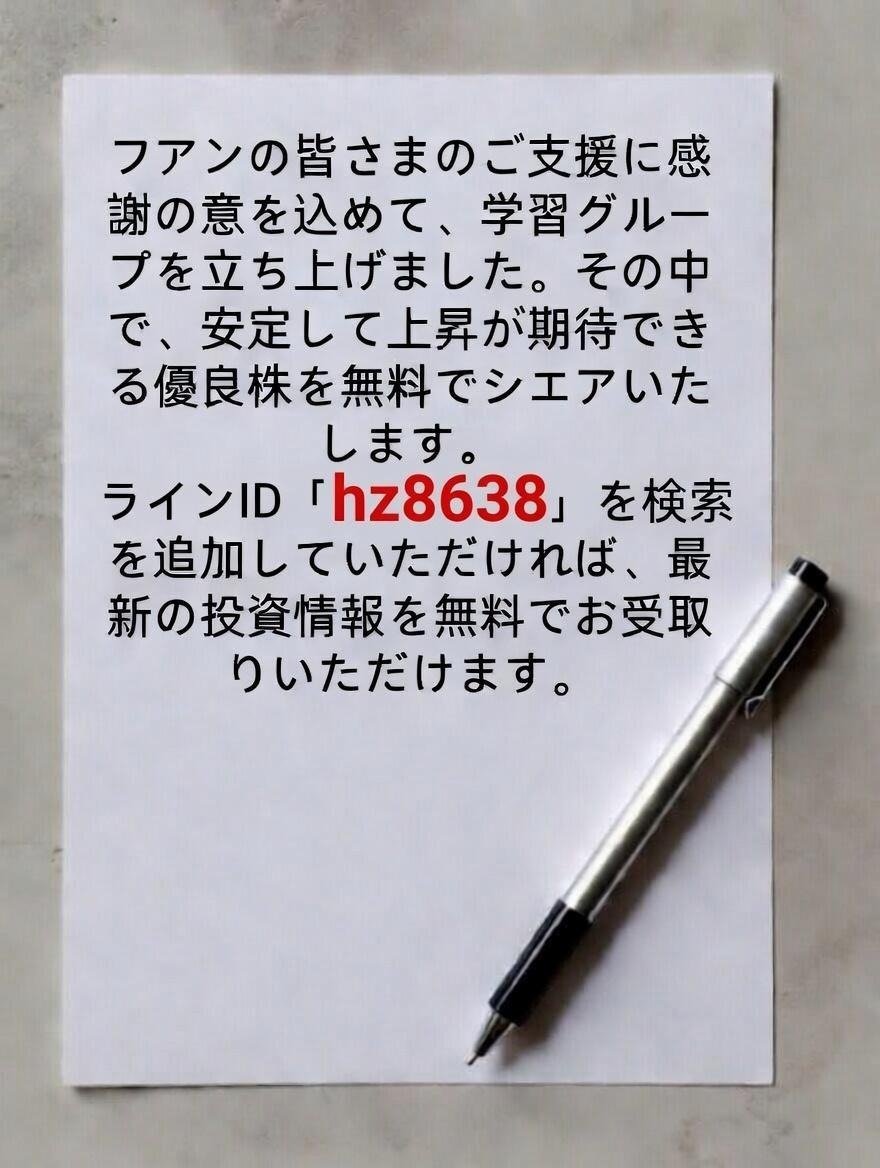 フアンの皆さまのご支援に感
謝の意を込めて、学習グルー
プを立ち上げました。その中
で、安定して上昇が期待でき
る優良株を無料でシエアいた
します。
ラインID「hz8638」を検索
を追加していただければ、最
新の投資情報を無料でお受取
りいただけます。